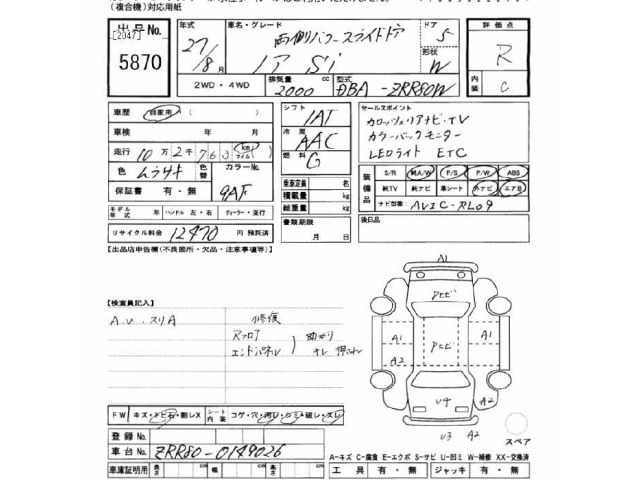 (複合機)対応用紙
出品No.
[2047]
5870
年式
27/8月
車名・グレード
両側パワースライドドア
ノア Si
ドア
5
形状
W
評価点
R
内装
C
2WD・4WD
排気量
2000 cc
型式
DBA-ZRR80W
車歴 自家用 ( )
車検 年 月
走行 10万2千763 km マイル
色 ムラサキ
色替
カラーNo.
9AF
保証書 有・無
モデル年式 年 ハンドル 左・右 ディーラー・並行
リサイクル料金 12470 円 預託済
シフト
IAT
冷房
AAC
燃料
G
乗車定員 名
積載量 kg
総重量 kg
書類期限
月 日
セールスポイント
カロッツェリアナビ・TV
カラーバックモニター
LEDライト ETC
装備品
S/R 純A/W P/S P/W ABS
純TV 純ナビ 革シート 外ナビ エアB
ナビ型番 AVIC-RL09
後日品
【出品店申告欄(不良箇所・欠品・注意事項等)】
【検査員記入】
A.U.スリA
修復
Rフロア
エンドパネル
曲がり
キレ 押され
A1
アトビ
A1
A2
A1
U4
A2
U3
A2
スペア
FW キズ・トビ石・割レX
シート内装 コゲ・穴・汚レ・シミ・破レ・スレ
登録No.
車台No. ZRR80-0149026
車庫証明用 長さ cm 幅 cm 高さ cm
A=キズ C=腐食 E=エクボ S=サビ U=凹ミ W=補修 XX=交換済
工具 有・無 ジャッキ 有・無